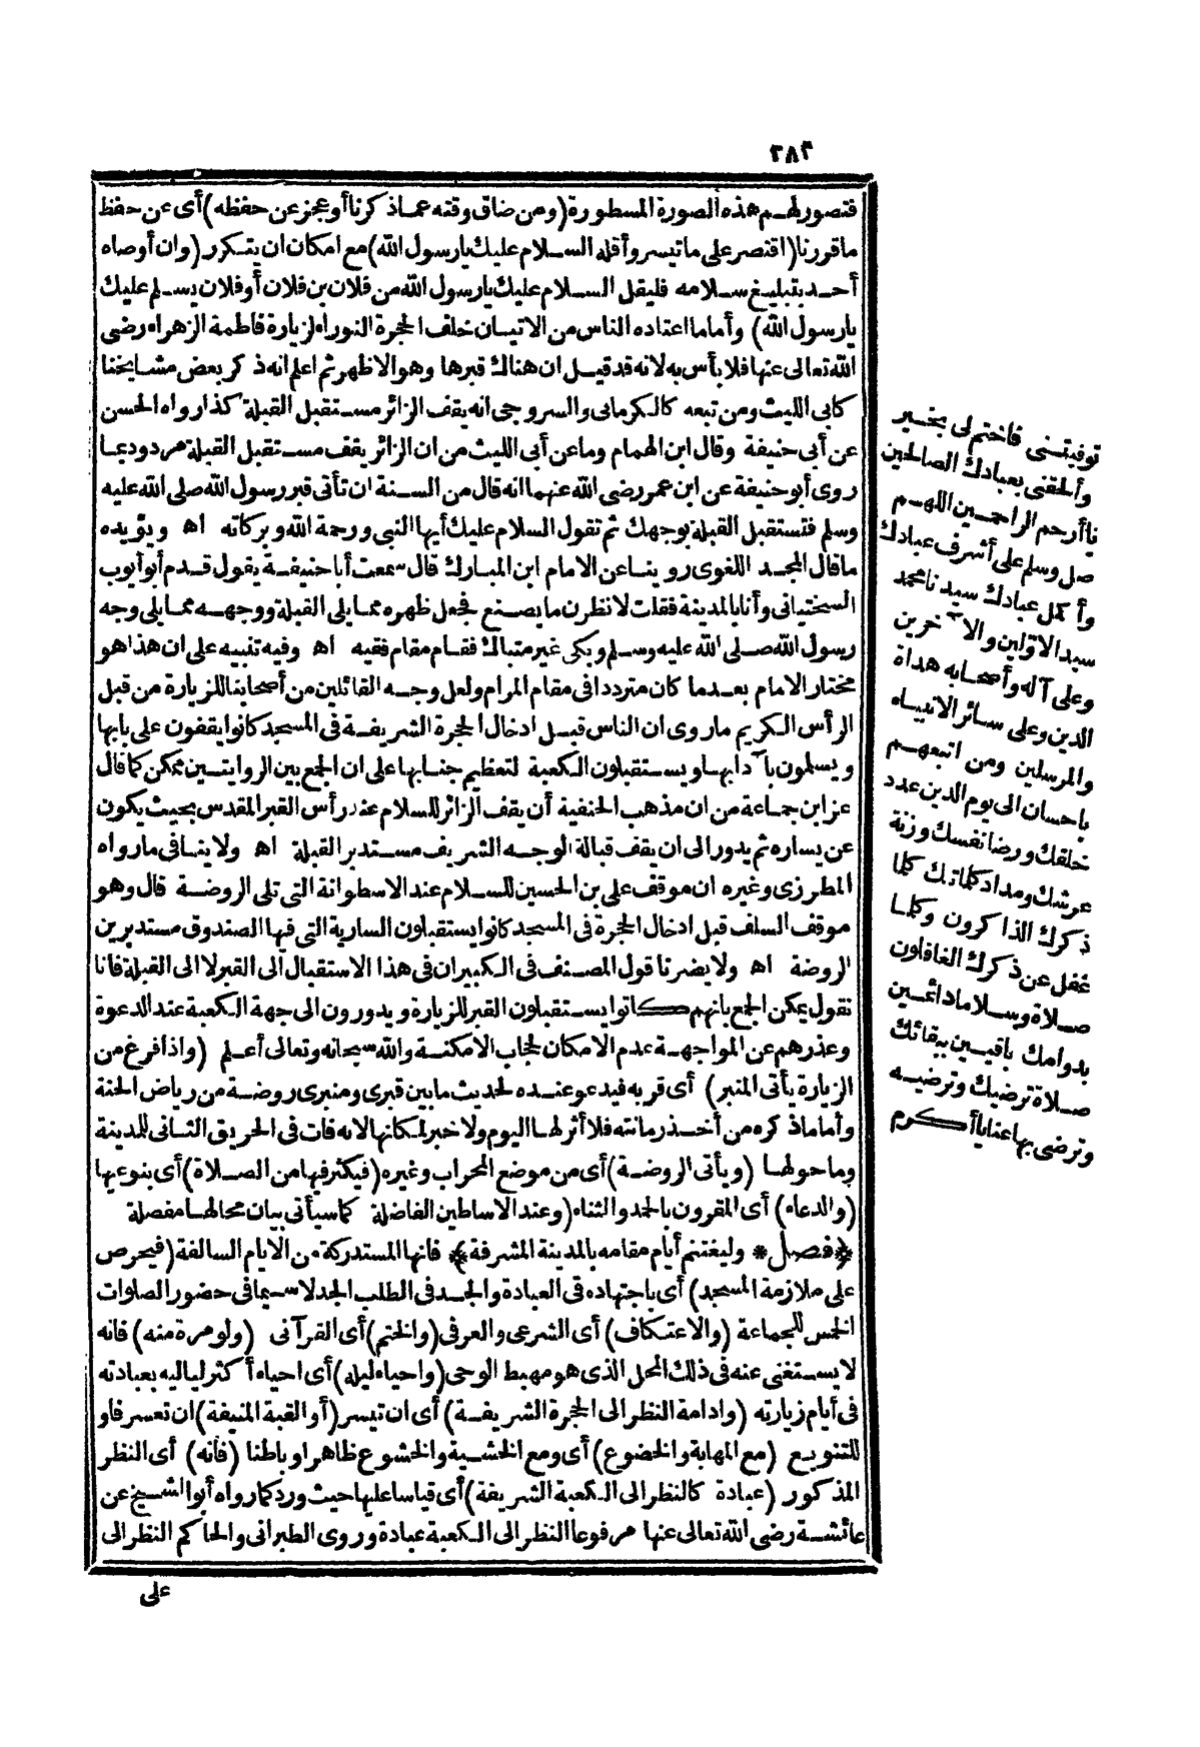 ٢٨٣
فتصور لهم هذه الصورة المسطورة (ومن ضاق وقته عما ذكرنا أو عجز عن حفظه) أى عن حفظ
ما قررنا (اقتصر على ما تيسر وأقله السلام عليك يا رسول الله) مع امكان ان يتكرر (وان أوصاه
أحد بتبليغ سلامه فليقل السلام عليك يا رسول الله من فلان بن فلان أو فلان يسلم عليك
يا رسول الله) وأما ما اعتاده الناس من الاتيان خلف الحجرة النوراء لزيارة فاطمة الزهراء رضى
الله تعالى عنها فلا بأس به لانه قد قيل ان هناك قبرها وهو الاظهر ثم اعلم انه ذكر بعض مشايخنا
كابى الليث ومن تبعه كالكرمانى والسروجى انه يقف الزائر مستقبل القبلة كذا رواه الحسن
عن أبى حنيفة وقال ابن الهمام وما عن أبى الليث من ان الزائر يقف مستقبل القبلة مردود بما
روى أبو حنيفة عن ابن عمر رضى الله عنهما انه قال من السنة ان تأتى قبر رسول الله صلى الله عليه
وسلم فتستقبل القبلة بوجهك ثم تقول السلام عليك أيها النبى ورحمة الله وبركاته اه ويؤيده
ما قال المجد اللغوى روينا عن الامام ابن المبارك قال سمعت أبا حنيفة يقول قدم أبو أيوب
السختيانى وأنا بالمدينة فقلت لانظرن ما يصنع فجعل ظهره مما يلى القبلة ووجهه مما يلى وجه
رسول الله صلى الله عليه وسلم وبكى غير متباك فقام مقام فقيه اه وفيه تنبيه على ان هذا هو
مختار الامام بعدما كان مترددا فى مقام المرام ولعل وجه القائلين من أصحابنا للزيارة من قبل
الرأس الكريم ما روى ان الناس قبل ادخال الحجرة الشريفة فى المسجد كانوا يقفون على بابها
ويسلمون بآدابها ويستقبلون الكعبة لتعظيم جنابها على ان الجمع بين الروايتين ممكن كما قال
عز ابن جماعة من ان مذهب الحنفية أن يقف الزائر للسلام عند رأس القبر المقدس بحيث يكون
عن يساره ثم يدور الى ان يقف قبالة الوجه الشريف مستدبر القبلة اه ولا ينافى ما رواه
المطرزى وغيره ان موقف على بن الحسين للسلام عند الاسطوانة التى تلى الروضة قال وهو
موقف السلف قبل ادخال الحجرة فى المسجد كانوا يستقبلون السارية التى فيها الصندوق مستدبرين
الروضة اه ولا يضرنا قول المصنف فى الكبير ان فى هذا الاستقبال الى القبر لا الى القبلة فانا
نقول يمكن الجمع بانهم كانوا يستقبلون القبر للزيارة ويدورون الى جهة الكعبة عند الدعوة
وعذرهم عن المواجهة عدم الامكان لحجاب الامكنة والله سبحانه وتعالى أعلم (واذا فرغ من
الزيارة يأتى المنبر) أى قربه فيدعو عنده لحديث ما بين قبرى ومنبرى روضة من رياض الجنة
وأما ما ذكره من أخذ رمانته فلا أثر لها اليوم ولا خبر لمكانها لانه فات فى الحريق الثانى للمدينة
وما حولها (ويأتى الروضة) أى من موضع المحراب وغيره (فيكثر فيها من الصلاة) أى بنوعيها
(والدعاء) أى المقرون بالحمد والثناء (وعند الاساطين الفاضلة كما سيأتى بيان محالها مفصلة
﴿فصل * وليغتنم أيام مقامه بالمدينة المشرفة﴾ فانها المستدركة من الايام السالفة (فيحرص
على ملازمة المسجد) أى باجتهاده فى العبادة والجد فى الطلب الجد لا سيما فى حضور الصلوات
الخمس للجماعة (والاعتكاف) أى الشرعى والعرفى (والختم) أى القرآنى (ولو مرة منه) فانه
لا يستغنى عنه فى ذلك المحل الذى هو مهبط الوحى (واحياء ليله) أى احياء أكثر لياليه بعبادته
فى أيام زيارته (وادامة النظر الى الحجرة الشريفة) أى ان تيسر (أو القبة المنيفة) ان تعسر فاو
للتنويع (مع المهابة والخضوع) أى ومع الخشية والخشوع ظاهرا وباطنا (فانه) أى النظر
المذكور (عبادة كالنظر الى الكعبة الشريفة) أى قياسا عليها حيث ورد كما رواه أبو الشيخ عن
عائشة رضى الله تعالى عنها مرفوعا النظر الى الكعبة عبادة وروى الطبرانى والحاكم النظر الى
على
توفيتنى فاختم لى بخير
وألحقنى بعبادك الصالحين
يا أرحم الراحمين اللهم
صل وسلم على أشرف عبادك
وأكمل عبادك سيدنا محمد
سيد الاولين والآخرين
وعلى آله وأصحابه هداة
الدين وعلى سائر الانبياء
والمرسلين ومن اتبعهم
باحسان الى يوم الدين عدد
خلقك ورضا نفسك وزنة
عرشك ومداد كلماتك كلما
ذكرك الذاكرون وكلما
غفل عن ذكرك الغافلون
صلاة وسلاما دائمين
بدوامك باقيين ببقائك
صلاة ترضيك وترضيه
وترضى بها عنا يا أكرم